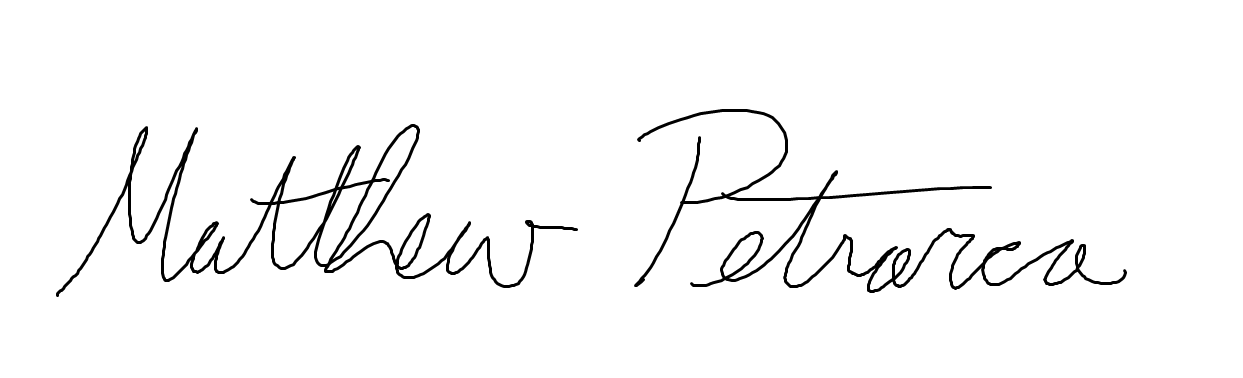 Matthew Petrarca